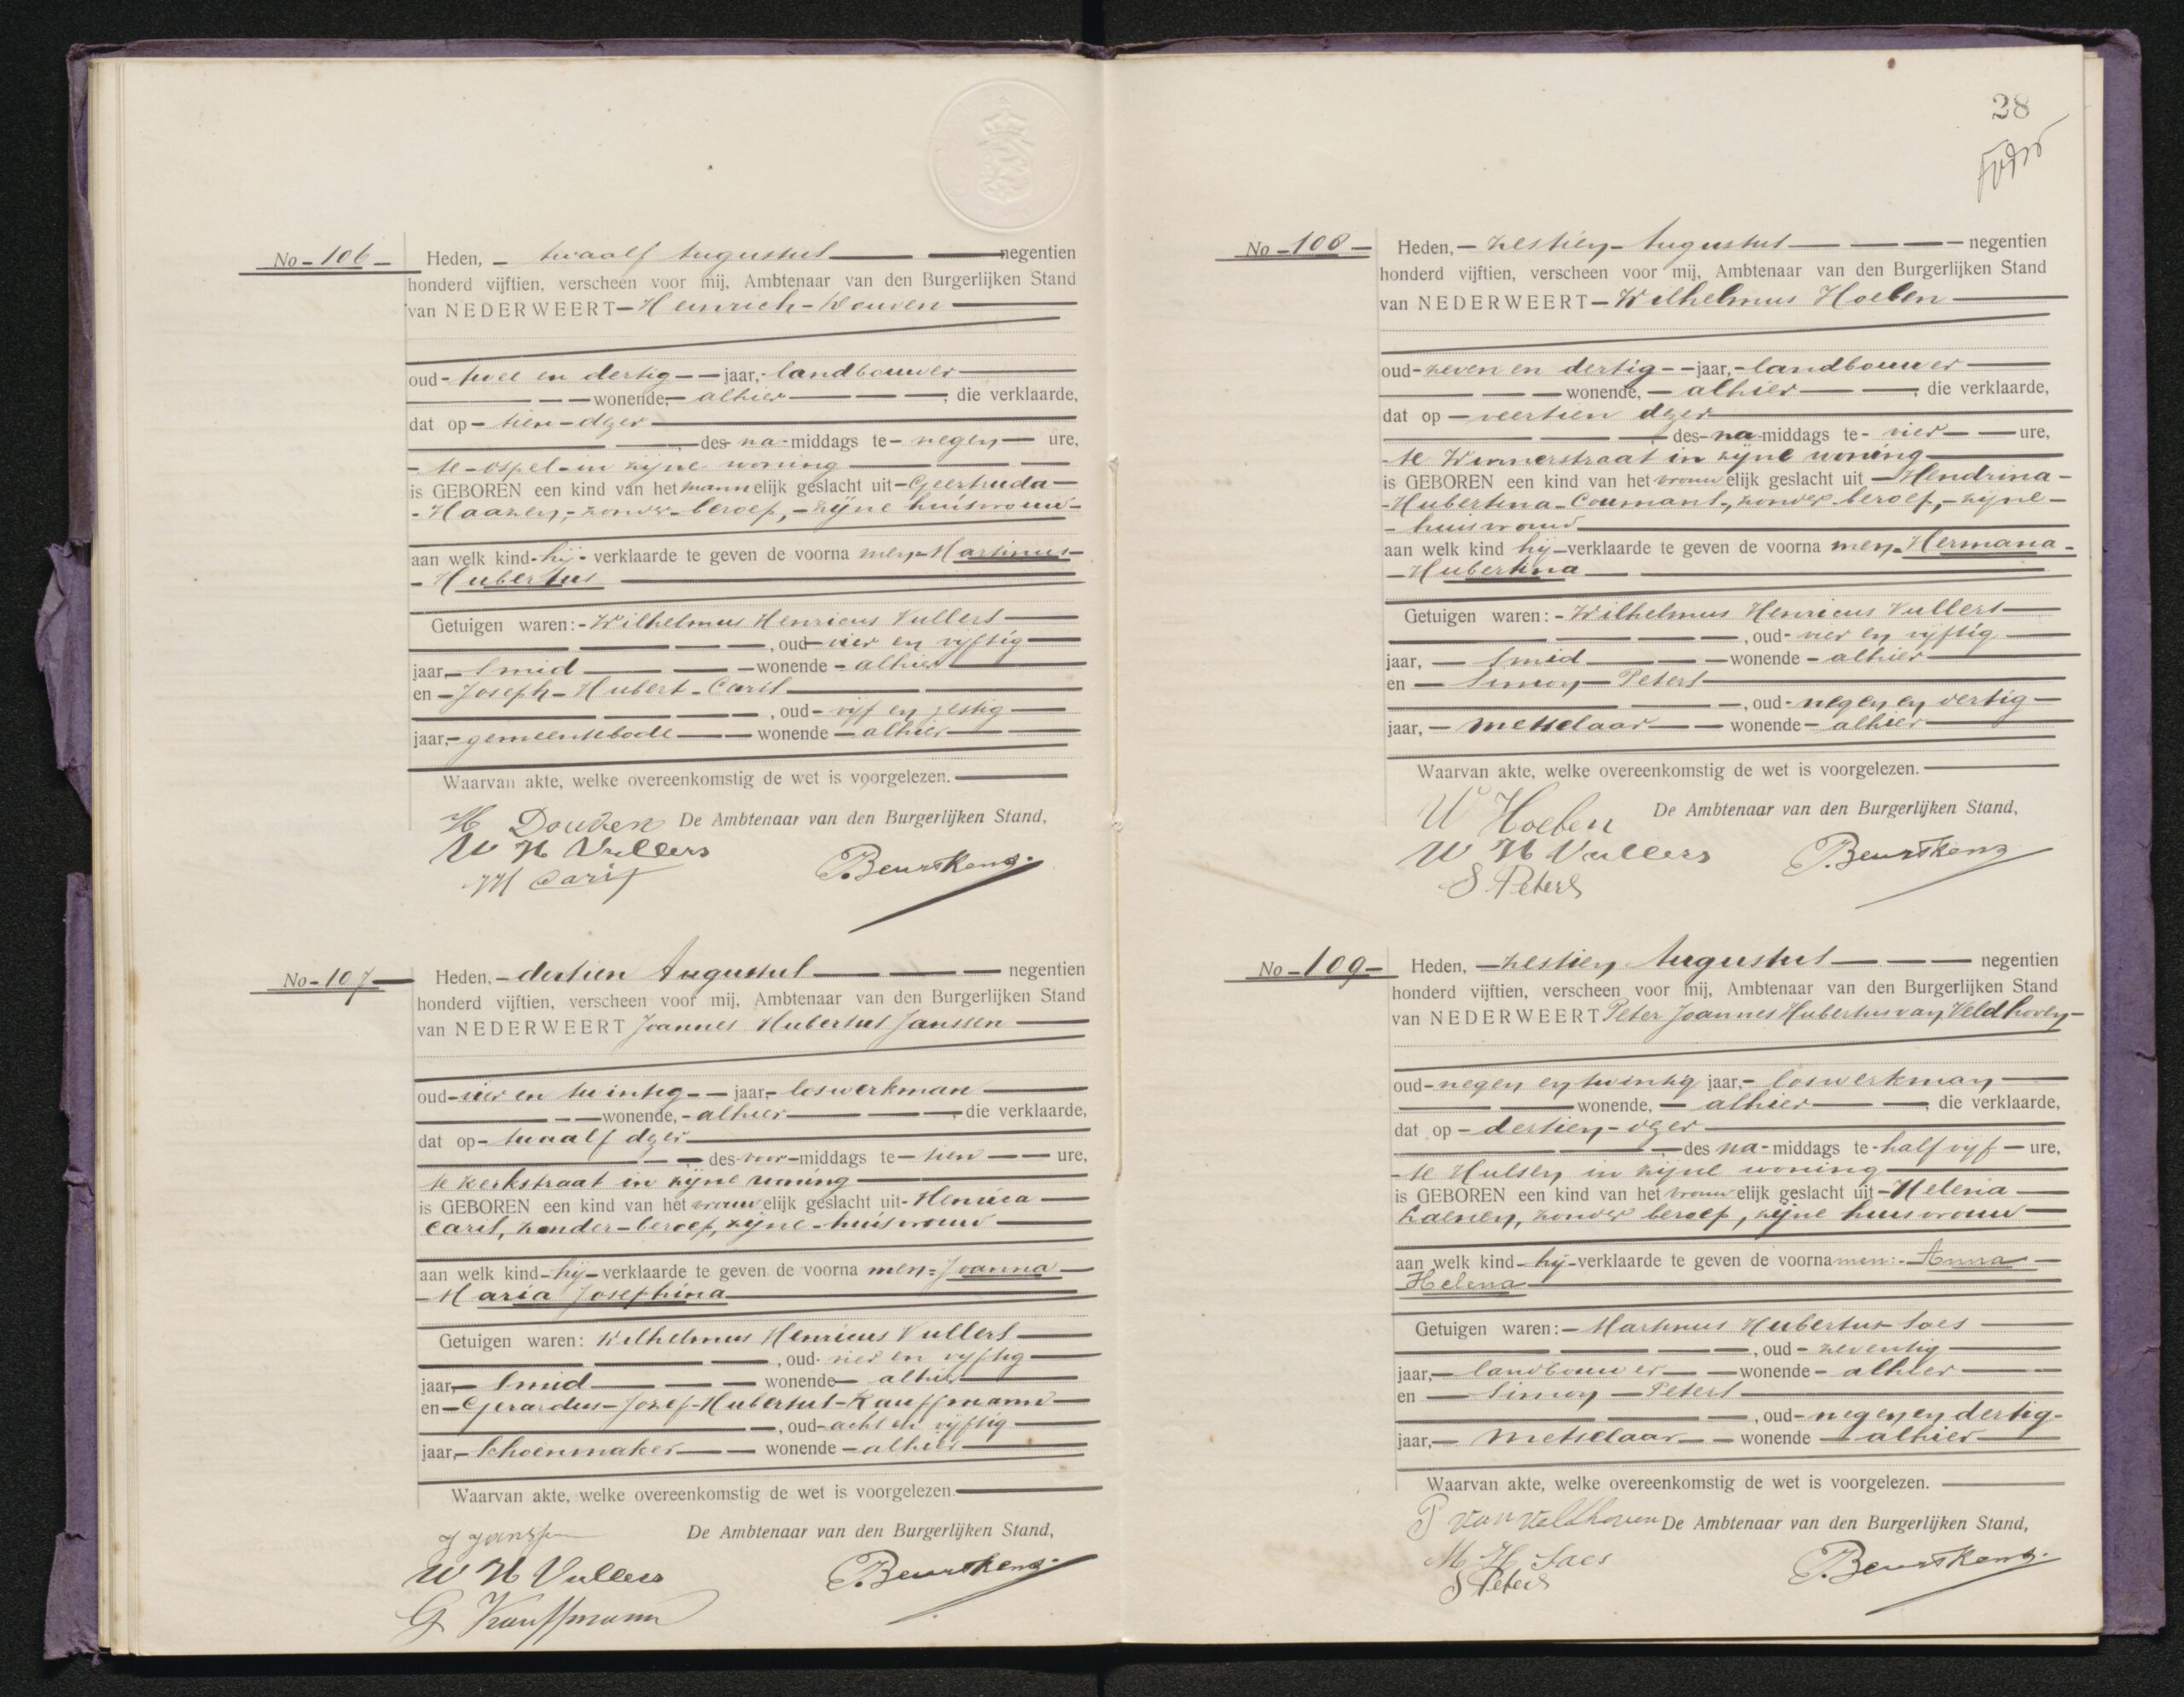 No 106
Heden, twaalf Augustus negentien
honderd vijftien, verscheen voor mij, Ambtenaar van den Burgerlijken Stand
van NEDERWEERT Heinrich Douven
oud twee en dertig jaar, landbouwer
wonende, alhier, die verklaarde,
dat op tien dezer
des na-middags te negen ure,
te Ospel in zijne woning
is GEBOREN een kind van het mannelijk geslacht uit Geertruda
Haazen, zonder beroep, zijne huisvrouw
aan welk kind hij verklaarde te geven de voornamen Martinus
Hubertus
Getuigen waren: Wilhelmus Henricus Vullers
, oud vier en vijftig
jaar, smid wonende alhier
en Joseph Hubert Caris
, oud vijf en zestig
jaar, gemeentebode wonende alhier
Waarvan akte, welke overeenkomstig de wet is voorgelezen.
H Douven De Ambtenaar van den Burgerlijken Stand,
W H Vullers
P. Beurskens.
JH Caris
No 107
Heden, dertien Augustus negentien
honderd vijftien, verscheen voor mij, Ambtenaar van den Burgerlijken Stand
van NEDERWEERT Joannes Hubertus Janssen
oud vier en twintig jaar, loswerkman
wonende, alhier, die verklaarde,
dat op twaalf dezer
des voor-middags te tien ure,
te Kerkstraat in zijne woning
is GEBOREN een kind van het vrouwelijk geslacht uit Henrica
Caris, zonder beroep, zijne huisvrouw
aan welk kind hij verklaarde te geven de voornamen: Joanna
Maria Josephina
Getuigen waren: Wilhelmus Henricus Vullers
, oud vier en vijftig
jaar, smid wonende alhier
en Gerardus Jozef Hubertus Kauffmann
, oud acht en vijftig
jaar, schoenmaker wonende alhier
Waarvan akte, welke overeenkomstig de wet is voorgelezen.
J Janssen De Ambtenaar van den Burgerlijken Stand,
W H Vullers
P. Beurskens.
G Kauffmann
28
No 108
Heden, zestien Augustus negentien
honderd vijftien, verscheen voor mij, Ambtenaar van den Burgerlijken Stand
van NEDERWEERT Wilhelmus Hoeben
oud zeven en dertig jaar, landbouwer
wonende, alhier, die verklaarde,
dat op veertien dezer
des na-middags te vier ure,
te Winnerstraat in zijne woning
is GEBOREN een kind van het vrouwelijk geslacht uit Hendrina
Hubertina Coumans, zonder beroep, zijne
huisvrouw
aan welk kind hij verklaarde te geven de voornamen Hermana
Hubertina
Getuigen waren: Wilhelmus Henricus Vullers
, oud vier en vijftig
jaar, smid wonende alhier
en Simon Peters
, oud negen en dertig
jaar, metselaar wonende alhier
Waarvan akte, welke overeenkomstig de wet is voorgelezen.
W Hoeben De Ambtenaar van den Burgerlijken Stand,
W H Vullers P. Beurskens
S Peters
No 109
Heden, zestien Augustus negentien
honderd vijftien, verscheen voor mij, Ambtenaar van den Burgerlijken Stand
van NEDERWEERT Peter Joannes Hubertus van Veldhoven
oud negen en twintig jaar, loswerkman
wonende, alhier, die verklaarde,
dat op dertien dezer
des na-middags te half vijf ure,
te Hulsen in zijne woning
is GEBOREN een kind van het vrouwelijk geslacht uit Helena
zonder beroep, zijne huisvrouw
aan welk kind hij verklaarde te geven de voornamen: Anna
Helena
Getuigen waren: Martinus Hubertus Saes
, oud zeventig
jaar, landbouwer wonende alhier
en Simon Peters
, oud negen en dertig
jaar, metselaar wonende alhier
Waarvan akte, welke overeenkomstig de wet is voorgelezen.
P van Veldhoven De Ambtenaar van den Burgerlijken Stand,
M H Saes
P. Beurskens.
S Peters